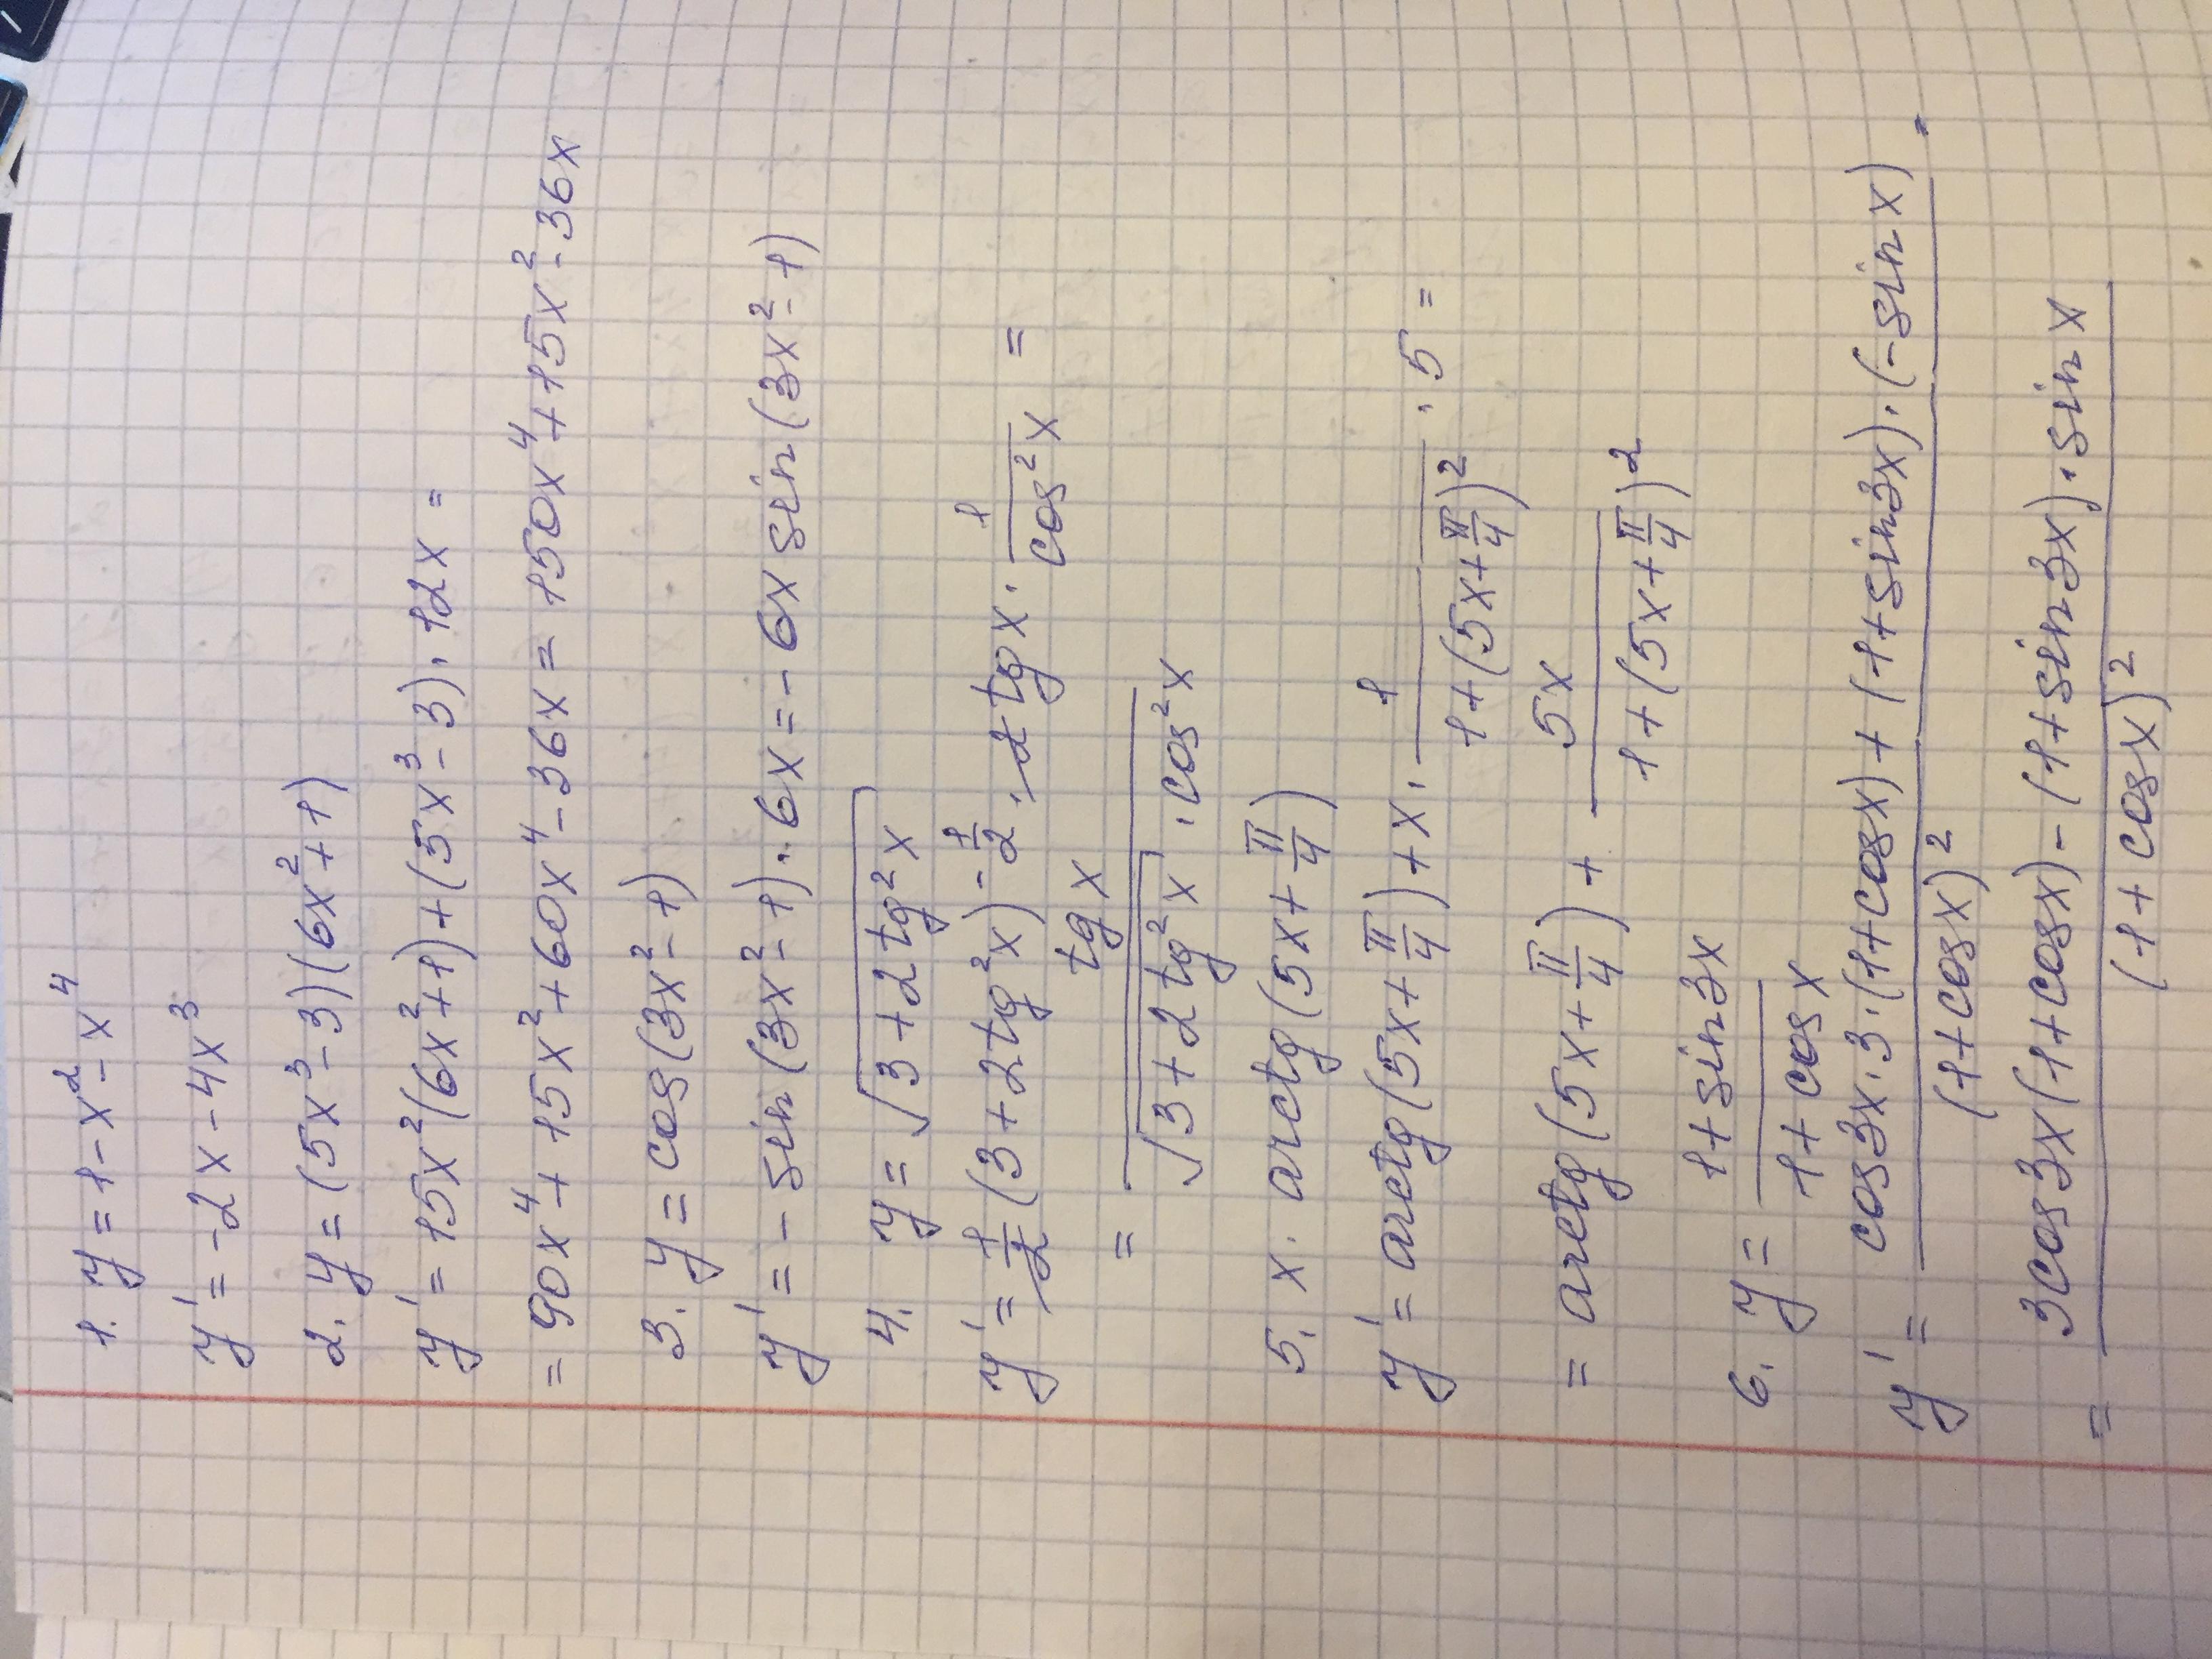 1. y = 1 - x² - x⁴
y' = -2x - 4x³
2. y = (5x³ - 3)(6x² + 1)
y' = 15x²(6x² + 1) + (5x³ - 3) · 12x =
= 90x⁴ + 15x² + 60x⁴ - 36x = 150x⁴ + 15x² - 36x
3. y = cos(3x² - 1)
y' = - sin(3x² - 1) · 6x = - 6x sin(3x² - 1)
4. y = √(3 + 2tg²x)
y' = 1/2 (3 + 2tg²x)^(-1/2) · 2tgx · 1/cos²x =
= tgx / (√(3 + 2tg²x) · cos²x)
5. x · arctg(5x + π/4)
y' = arctg(5x + π/4) + x · 1/(1 + (5x + π/4)²) · 5 =
= arctg(5x + π/4) + 5x/(1 + (5x + π/4)²)
6. y = (1 + sin3x)/(1 + cosx)
y' = (cos3x · 3 · (1 + cosx) + (1 + sin3x) · (-sinx))/(1 + cosx)² =
= (3cos3x(1 + cosx) - (1 + sin3x) · sinx)/(1 + cosx)²